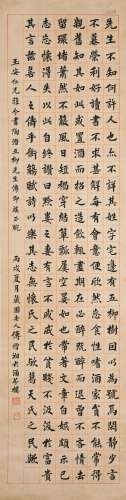 先生不知何許人也亦不詳其姓字宅邊有五柳樹因以為號焉閒靜少言
不慕榮利好讀書不求甚解每有會意便欣然忘食性嗜酒家貧不能常得
親舊知其如此或置酒而招之造飲輒盡期在必醉既醉而退曾不吝情去
留環堵蕭然不蔽風日短褐穿結簞瓢屢空晏如也常著文章自娛頗示己
志忘懷得失以此自終贊曰黔婁有言不戚戚於貧賤不汲汲於富貴
其言茲若人之儔乎酣觴賦詩以樂其志無懷氏之民歟葛天氏之民歟
玉安仁兄雅令書陶潛五柳先生傳即
丙戌夏月藏園老人傅增湘